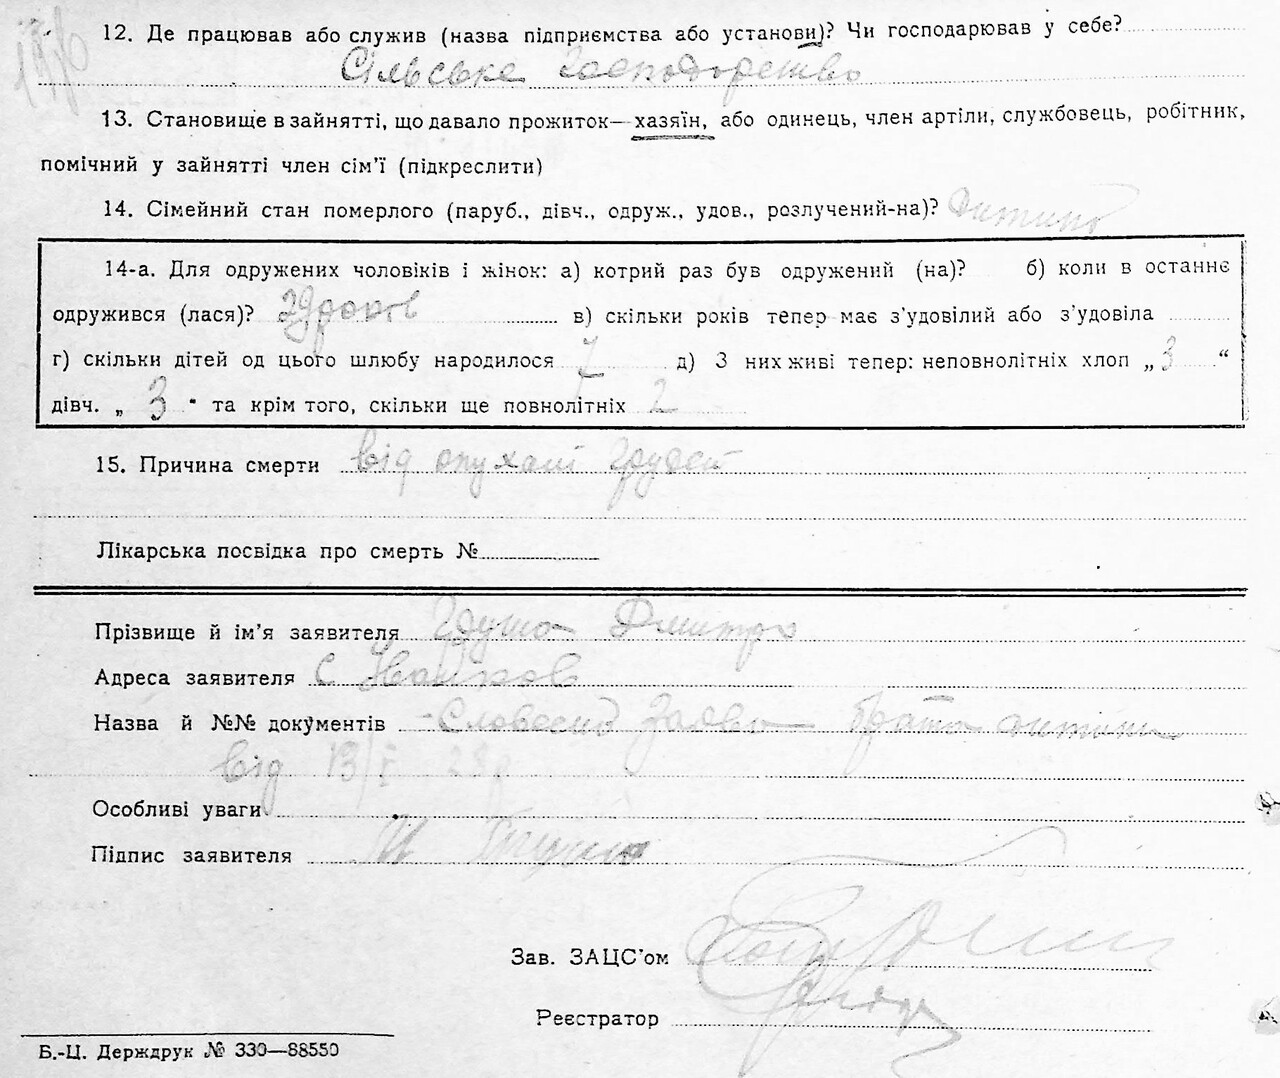 12. Де працював або служив (назва підприємства або установи)? Чи господарював у себе?
Сільське Господарство
13. Становище в зайнятті, що давало прожиток—хазяїн, або одинець, член артіли, службовець, робітник,
помічний у зайнятті член сім'ї (підкреслити)
14. Сімейний стан померлого (паруб., дівч., одруж., удов., розлучений-на)?
14-а. Для одружених чоловіків і жінок: а) котрий раз був одружений (на)? б) коли в останнє
одружився (лася)? в) скільки років тепер має з'удовілий або з'удовіла
г) скільки дітей од цього шлюбу народилося 7 д) З них живі тепер: неповнолітніх хлоп „ 3 “
дівч. „ 3 " та крім того, скільки ще повнолітніх 2
15. Причина смерти від грудей
Лікарська посвідка про смерть №
Прізвище й ім'я заявителя Дмитро
Адреса заявителя С
Назва й №№ документів заява брата
від 13/I
Особливі уваги
Підпис заявителя
Зав. ЗАЦС'ом
Реєстратор
Б.-Ц. Держдрук № 330—88550